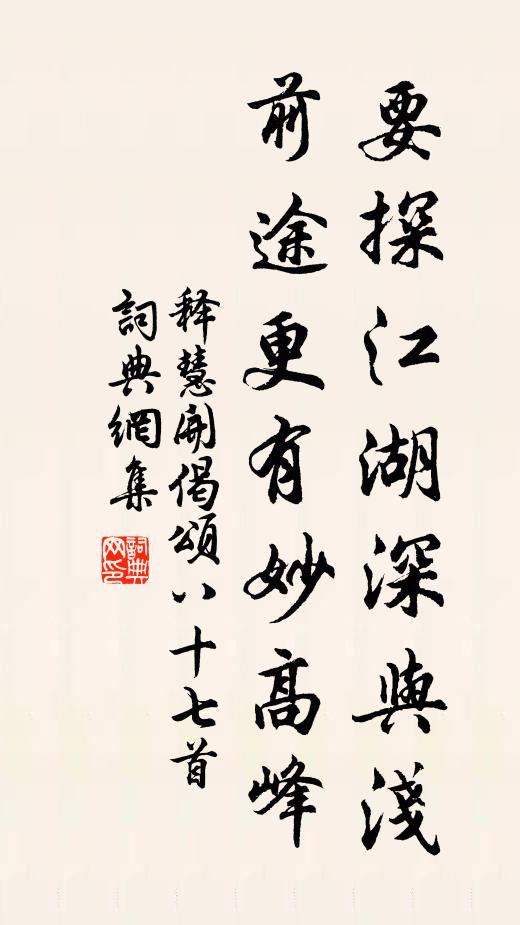 要探江湖深與淺
前途更有妙高峰
释慧開偈頌八十七首
詞典網集
詞典網印